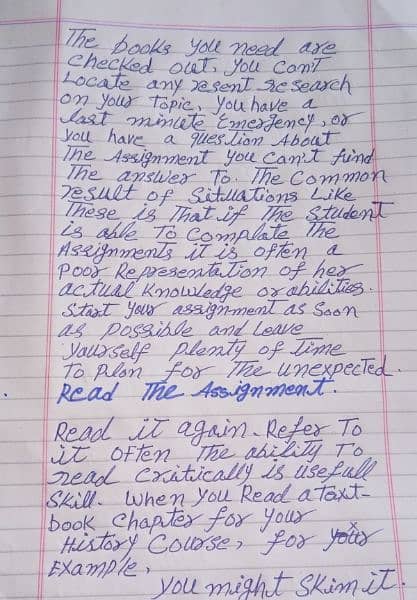 The books you need are
checked out, you can't
Locate any resent research
on your topic, you have a
last minute Emergency, or
you have a question About
The Assignment you can't fund
The answer To. The common
result of Situations Like
These is That if The Student
is able To Complate The
Assignments it is often a
poor Representation of her
actual knowledge or abilities.
Start your assignment as Soon
as possible and Leave
yourself plenty of Time
To plan for The unexpected.
Read The Assignment.
Read it again. Refer To
it often The ability To
read critically is usefull
Skill. When you Read a Text-
book chapter for your
History Course, for your
Example,
you might Skim it.